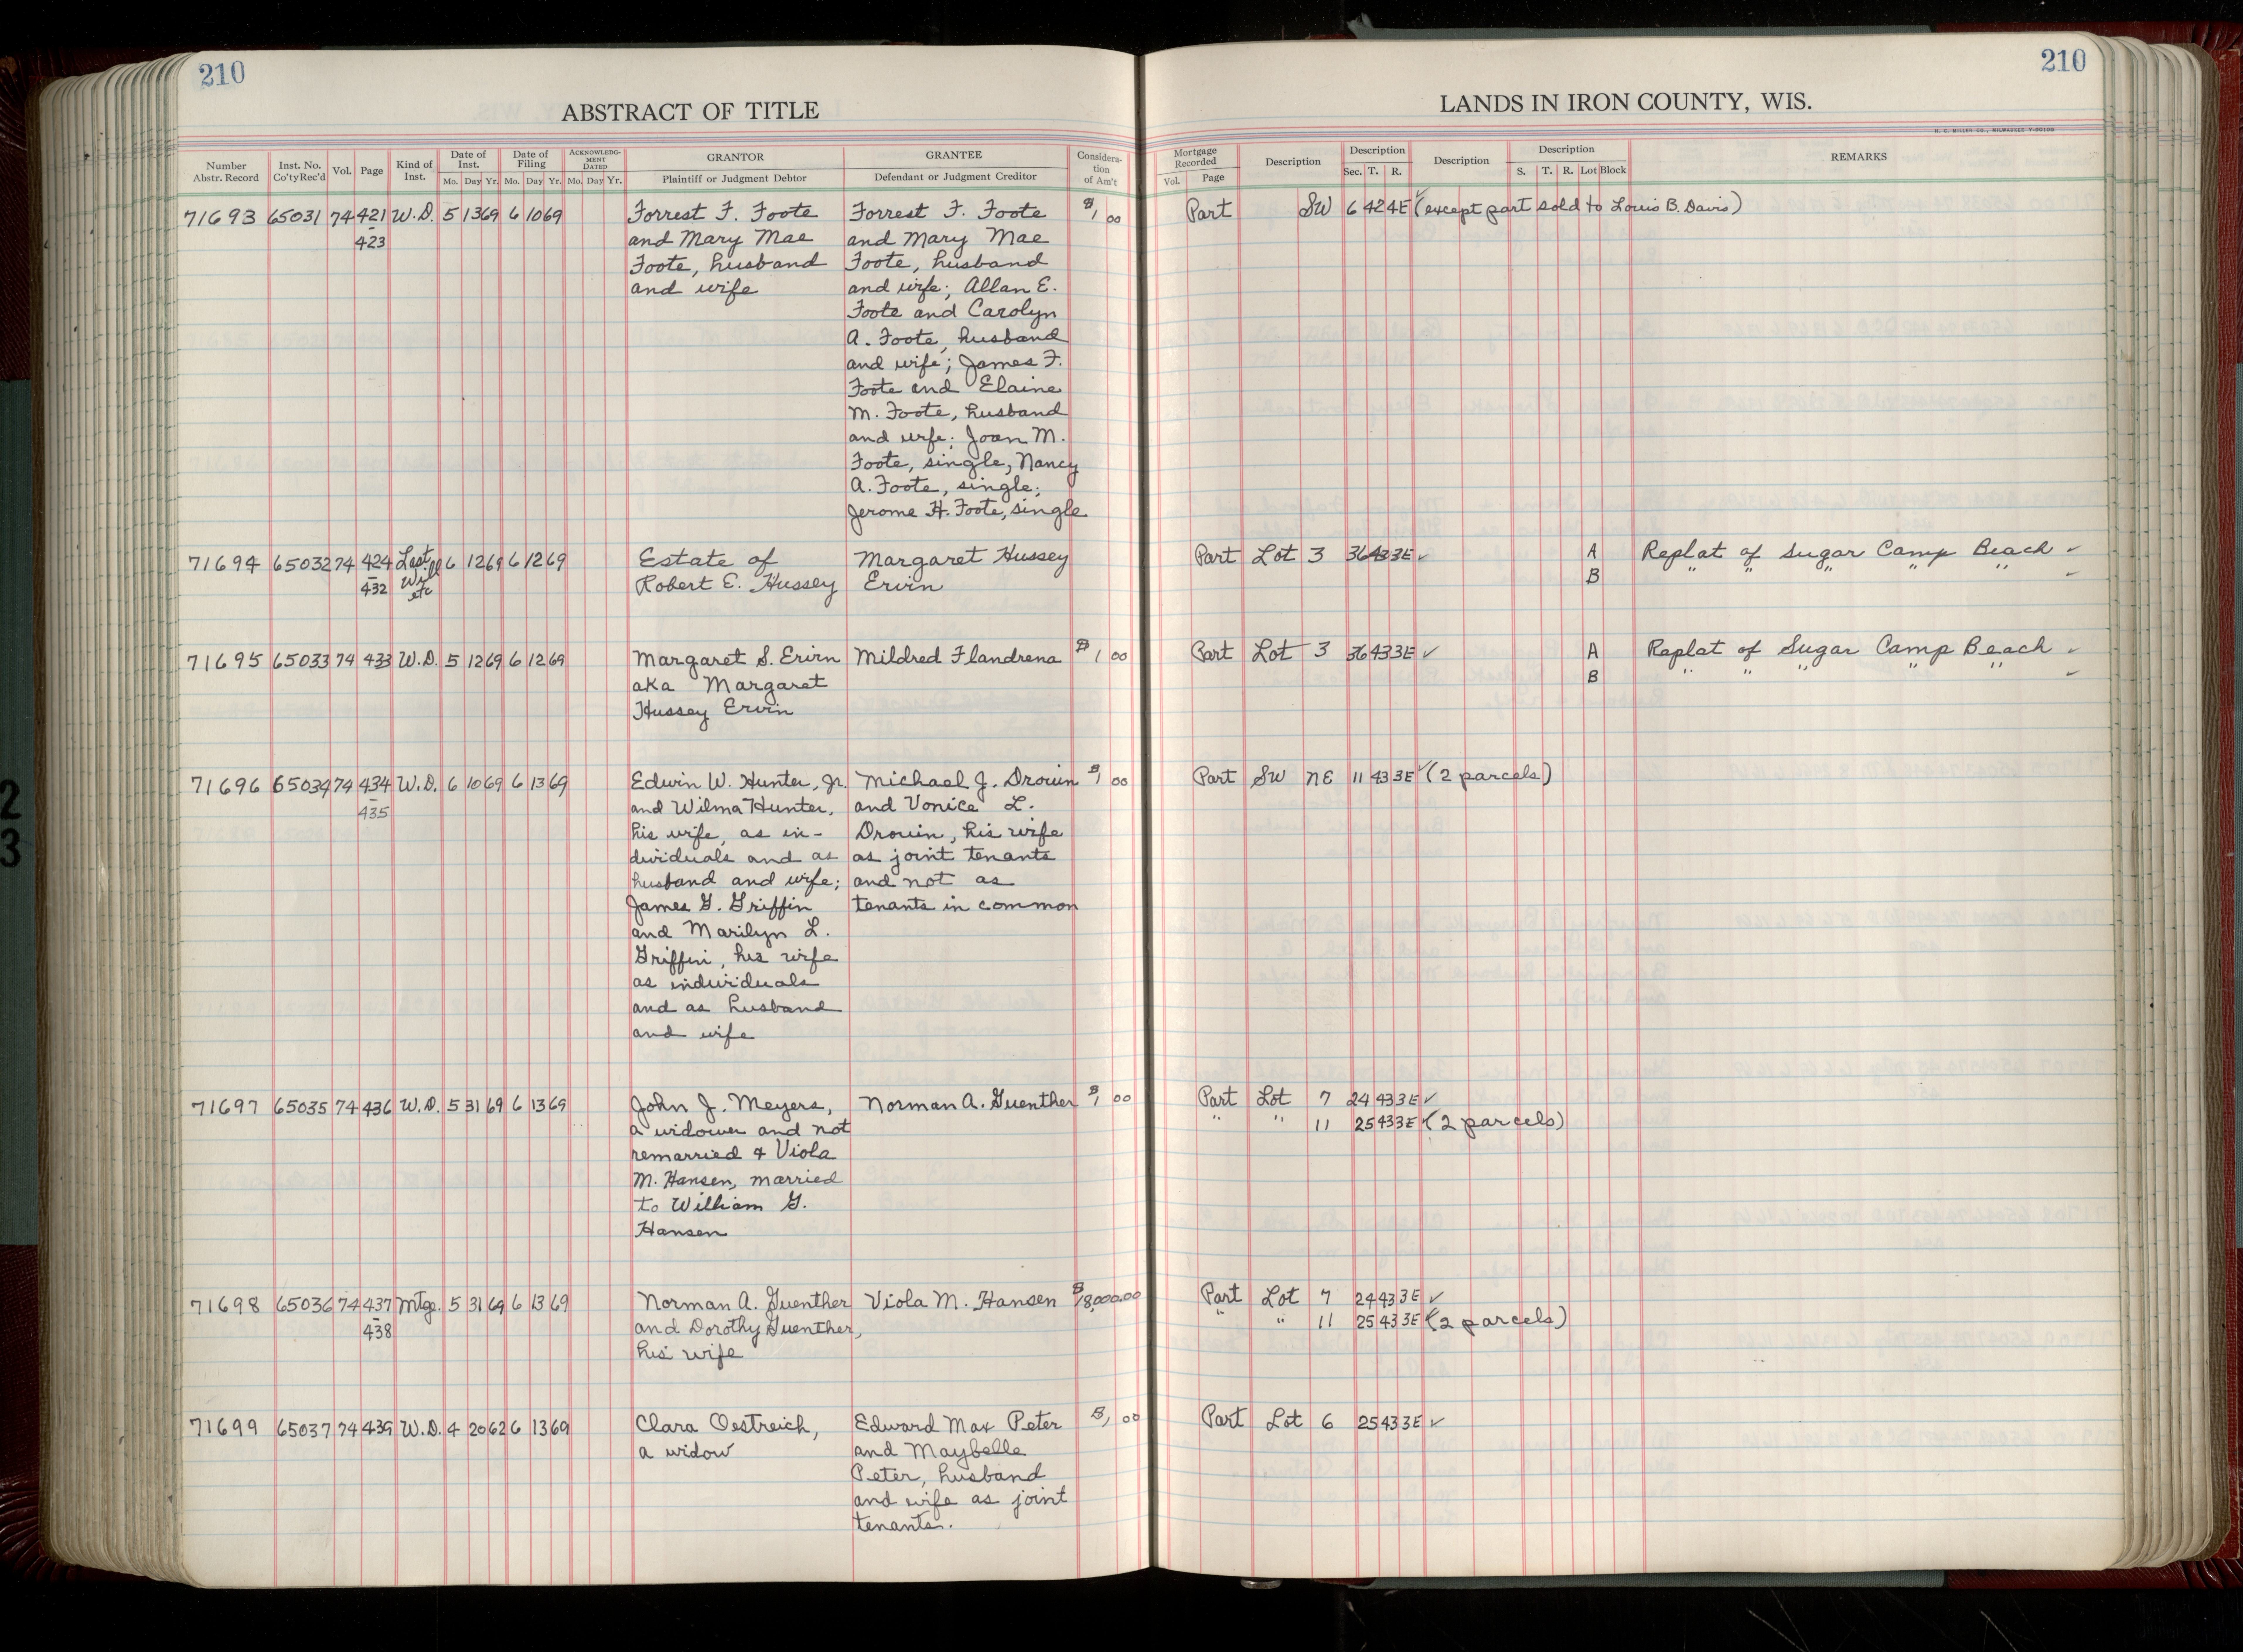 210
ABSTRACT OF TITLE
210
LANDS IN IRON COUNTY, WIS.
H. C. MILLER CO., MILWAUKEE
Number Abstr. Record | Inst. No. Co'ty Rec'd | Vol. | Page | Kind of Inst. | Date of Inst. Mo. Day Yr. | Date of Filing Mo. Day Yr. | ACKNOWLEDGMENT DATED Mo. Day Yr. | GRANTOR Plaintiff or Judgment Debtor | GRANTEE Defendant or Judgment Creditor | Consideration of Am't | Mortgage Recorded Vol. Page | Description | Description Sec. T. R. | Description | Description S. T. R. Lot Block | REMARKS
71693 65031 74 421 W.D. 5 13 69 6 10 69 Forrest F. Foote Forrest F. Foote $1 00 Part SW 6 42 4E ✓ (except part sold to Louis B. Davis)
-423 and Mary Mae and Mary Mae
Foote, husband Foote, husband
and wife and wife; Allan E.
Foote and Carolyn
A. Foote, husband
and wife; James F.
Foote and Elaine
M. Foote, husband
and wife; Joan M.
Foote, single, Nancy
A. Foote, single;
Jerome H. Foote, single
71694 65032 74 424 Last 6 12 69 6 12 69 Estate of Margaret Hussey Part Lot 3 36 43 3E ✓ A Replat of Sugar Camp Beach ✓
-432 Will etc Robert E. Hussey Ervin B " " " " " ✓
71695 65033 74 433 W.D. 5 12 69 6 12 69 Margaret S. Ervin Mildred Flandrena $1 00 Part Lot 3 36 43 3E ✓ A Replat of Sugar Camp Beach ✓
aka Margaret B " " " " " ✓
Hussey Ervin
71696 65034 74 434 W.D. 6 10 69 6 13 69 Edwin W. Hunter, Jr. Michael J. Drouin $1 00 Part SW NE 11 43 3E ✓ (2 parcels)
-435 and Wilma Hunter, and Vonice L.
his wife, as in- Drouin, his wife
dividuals and as as joint tenants
husband and wife; and not as
James G. Griffin tenants in common
and Marilyn L.
Griffin, his wife
as individuals
and as husband
and wife
71697 65035 74 436 W.D. 5 31 69 6 13 69 John J. Meyers, Norman A. Guenther $1 00 Part Lot 7 24 43 3E ✓
a widower and not " " 11 25 43 3E ✓ (2 parcels)
remarried & Viola
M. Hansen, married
to William G.
Hansen
71698 65036 74 437 Mtge. 5 31 69 6 13 69 Norman A. Guenther Viola M. Hansen $18,000.00 Part Lot 7 24 43 3E ✓
-438 and Dorothy Guenther, " " 11 25 43 3E ✓ (2 parcels)
his wife
71699 65037 74 439 W.D. 4 20 62 6 13 69 Clara Oestreich, Edward Max Peter $1 00 Part Lot 6 25 43 3E ✓
a widow and Maybelle
Peter, husband
and wife as joint
tenants.
2
3